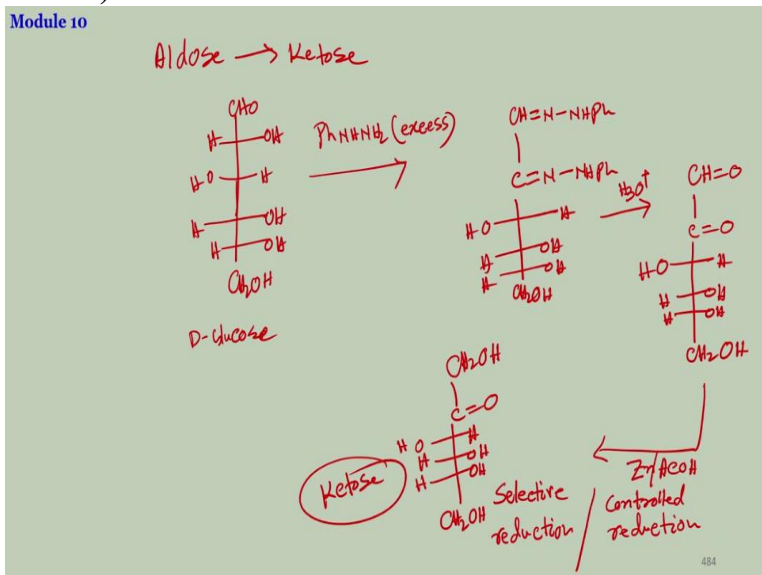 Module 10
Aldose → Ketose
CHO
H OH
HO H
H OH
H OH
CH2OH
D-Glucose
PhNHNH2 (excess)
CH=N-NHPh
C=N-NHPh
HO H
H OH
H OH
CH2OH
H3O+
CH=O
C=O
HO H
H OH
H OH
CH2OH
Zn/AcOH
Controlled
reduction
Selective
reduction
CH2OH
C=O
HO H
H OH
H OH
CH2OH
Ketose
484